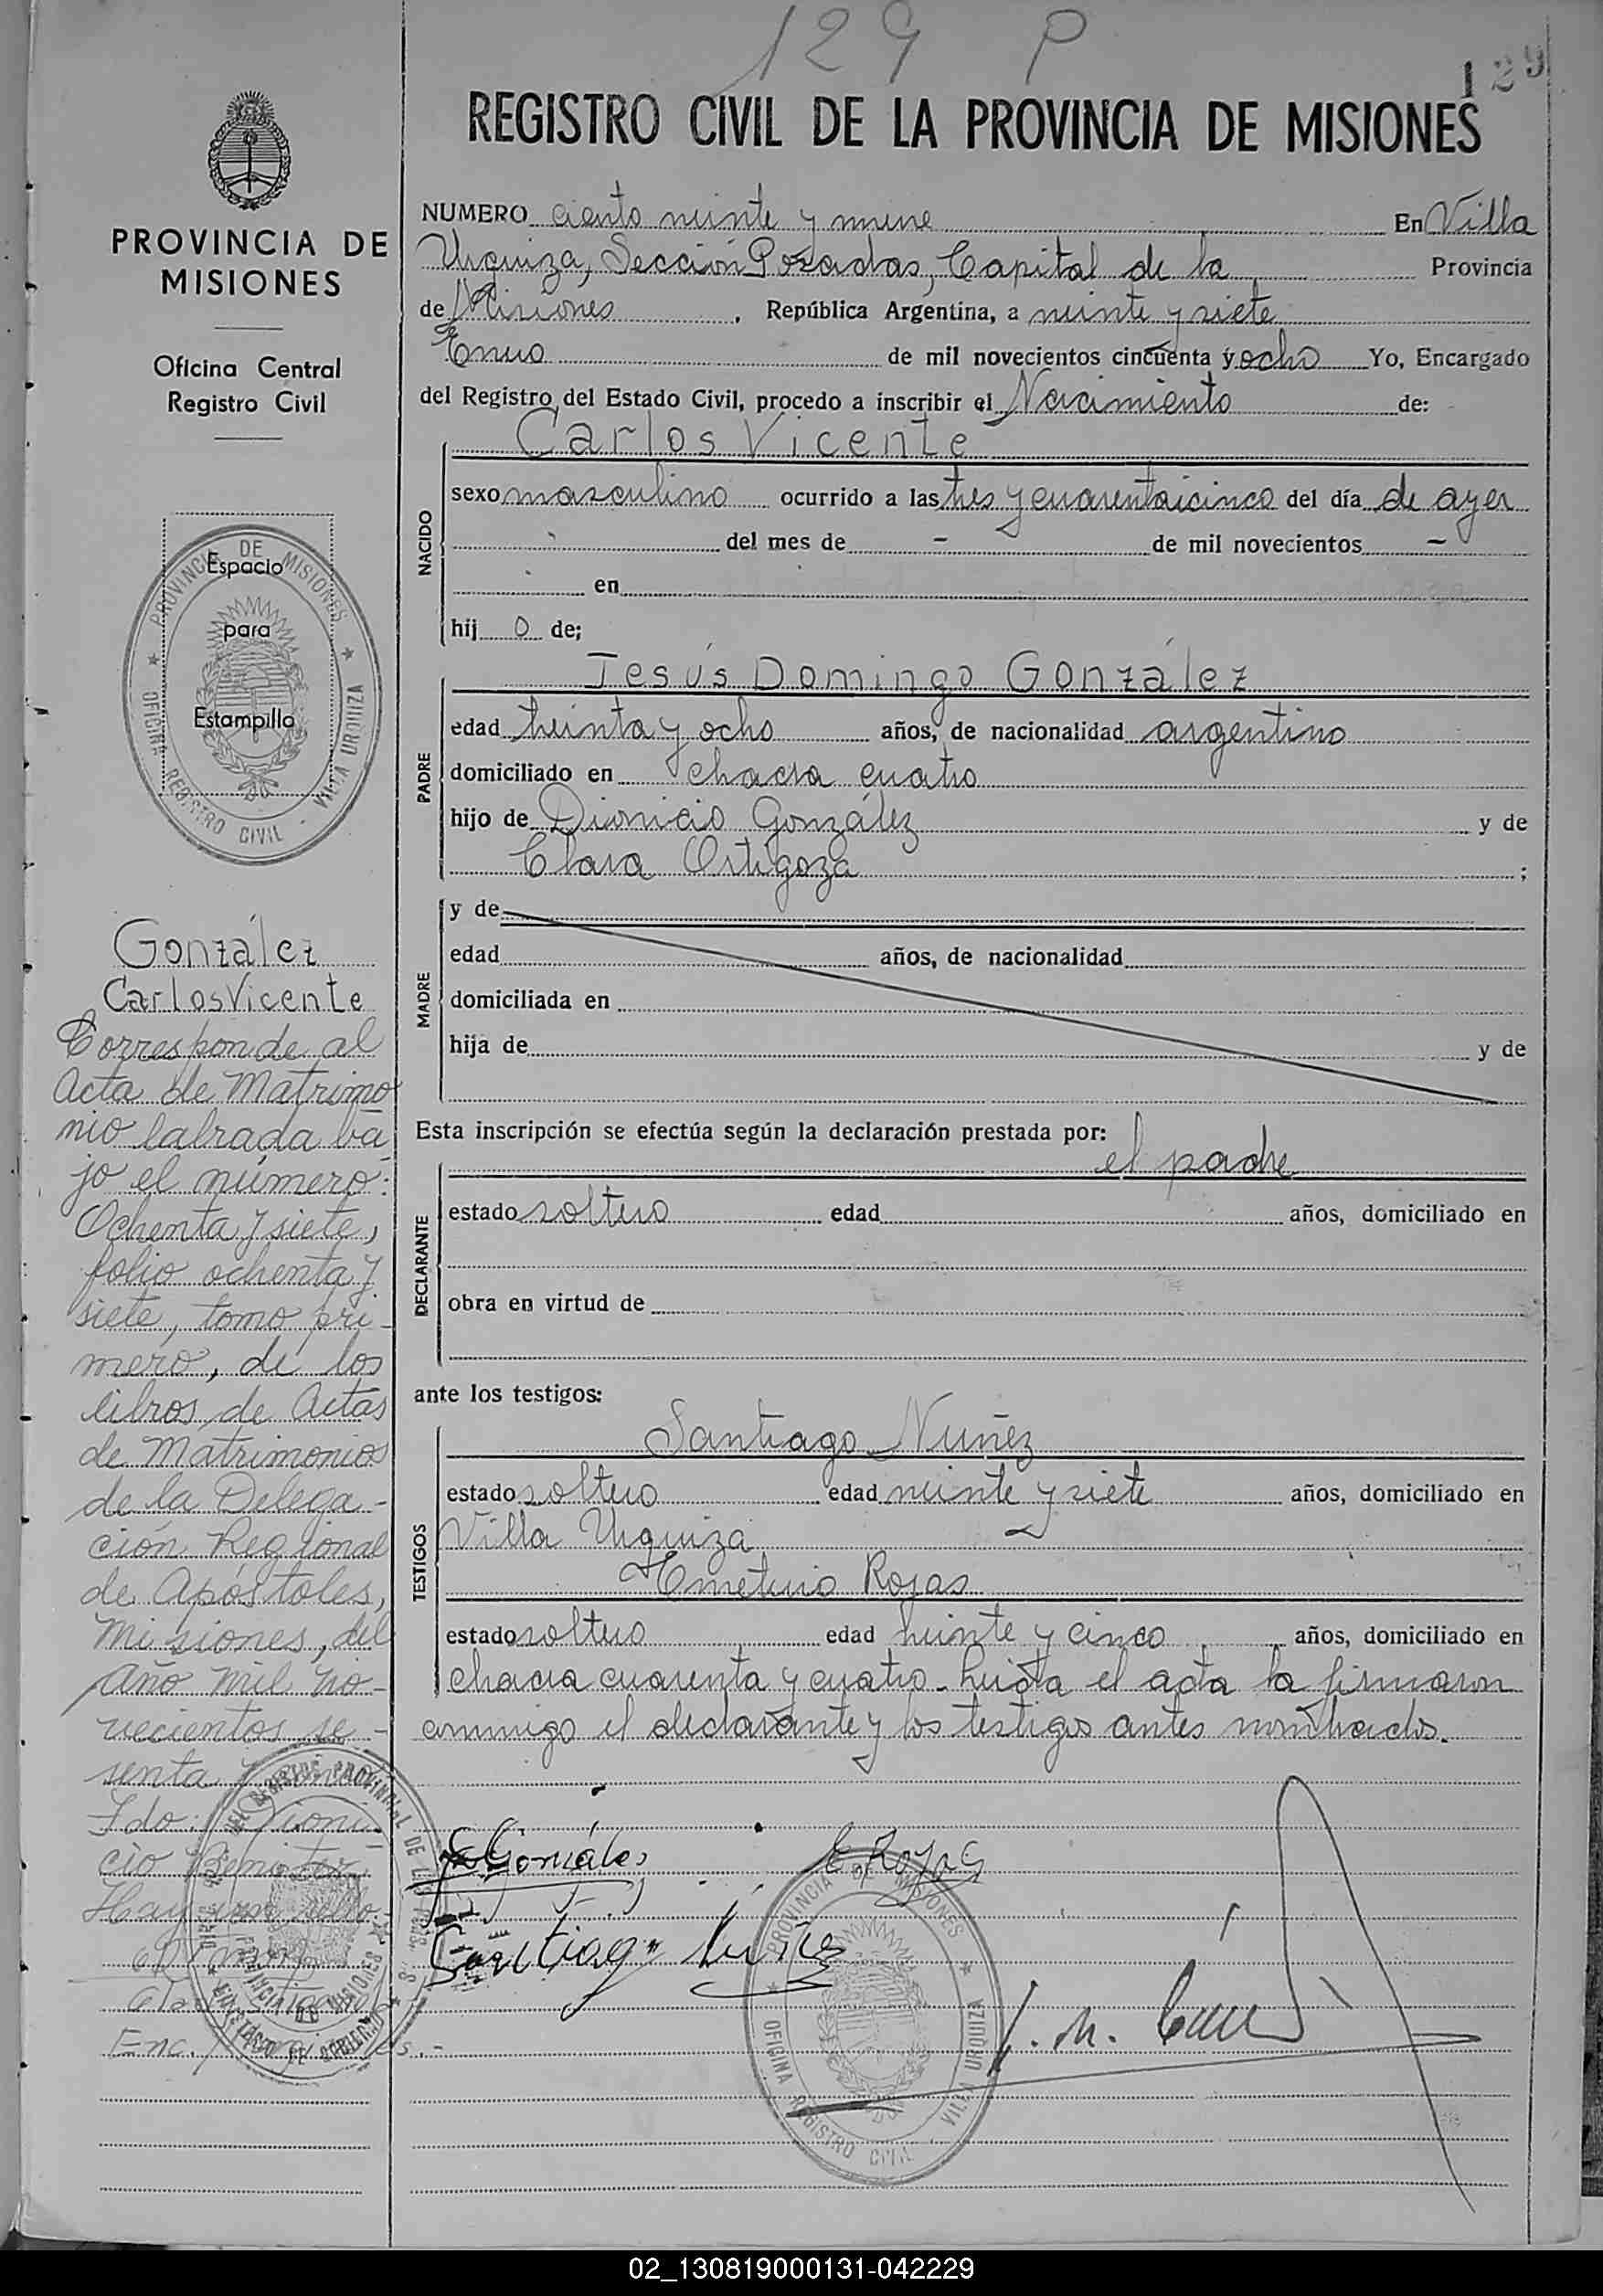 129 P
129
REGISTRO CIVIL DE LA PROVINCIA DE MISIONES
PROVINCIA DE
MISIONES
Oficina Central
Registro Civil
Espacio
para
Estampilla
PROVINCIA DE MISIONES
OFICINA REGISTRO CIVIL - VILLA URQUIZA
González
Carlos Vicente
Corresponde al
Acta de Matrimo
nio labrada ba
jo el número:
Ochenta y siete,
folio ochenta y
siete, tomo pri-
mero, de los
libros de Actas
de Matrimonios
de la Delega-
ción Regional
de Apóstoles,
Misiones, del
Año mil no-
vecientos se-
senta y
Fdo: Dioni
cio
Hay un sello
Enc.
NUMERO ciento veinte y nueve En Villa
Urquiza, Sección Posadas, Capital de la Provincia
de Misiones, República Argentina, a veinte y siete
Enero de mil novecientos cincuenta y ocho Yo, Encargado
del Registro del Estado Civil, procedo a inscribir el Nacimiento de:
NACIDO
Carlos Vicente
sexo masculino ocurrido a las tres y cuarentaicinco del día de ayer
del mes de - de mil novecientos -
en
hij o de;
PADRE
Jesús Domingo González
edad treinta y ocho años, de nacionalidad argentino
domiciliado en chacra cuatro
hijo de Dionicio González y de
Clara Ortigoza ;
MADRE
y de
edad años, de nacionalidad
domiciliada en
hija de y de
Esta inscripción se efectúa según la declaración prestada por:
el padre
DECLARANTE
estado soltero edad años, domiciliado en
obra en virtud de
ante los testigos:
TESTIGOS
Santiago Nuñez
estado soltero edad veinte y siete años, domiciliado en
Villa Urquiza
Emeterio Rojas
estado soltero edad treinte y cinco años, domiciliado en
chacra cuarenta y cuatro. Leida el acta la firmaron
conmigo el declarante y los testigos antes nombrados.
González
E Rojas
Santiago Nuñez
PROVINCIA DE MISIONES
OFICINA REGISTRO CIVIL - VILLA URQUIZA
02_130819000131-042229